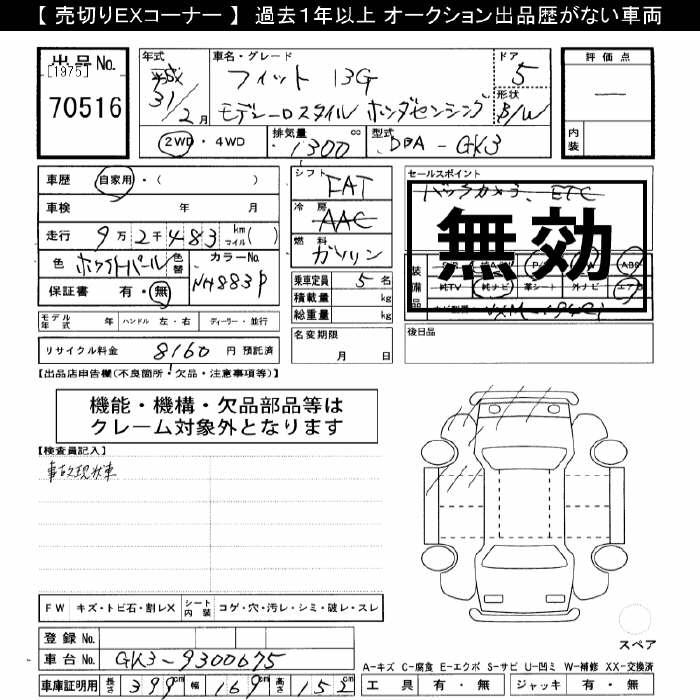 【 売切りEXコーナー 】 過去１年以上 オークション出品歴がない車両
出品No.
[1975]
70516
年式
平成
31/2月
車名・グレード
フィット 13G
モデューロスタイル ホンダセンシング
ドア
5
形状
B/W
評価点
—
内装
2WD・4WD
排気量
1300 cc
型式
DBA-GK3
車歴 自家用・( )
車検 年 月
走行 9万2千483 km マイル( )
色 ホワイトパール
色替
カラーNo.
NH883P
保証書 有・無
シフト
FAT
冷房
AAC
燃料
ガソリン
乗車定員 5 名
積載量 kg
総重量 kg
セールスポイント
バックカメラ、ETC
無効
装備品
ABS
純TV 純ナビ 革シート 外ナビ エアB
VXM-194Ci
モデル年式 年 ハンドル 左・右 ディーラー・並行
名変期限
月 日
後日品
リサイクル料金 8160 円 預託済
【出品店申告欄(不良箇所・欠品・注意事項等)】
機能・機構・欠品部品等は
クレーム対象外となります
【検査員記入】
事故現状車
FW キズ・トビ石・割レX シート内装 コゲ・穴・汚レ・シミ・破レ・スレ
登録No.
車台No. GK3-9300675
車庫証明用 長さ 399cm 幅 169cm 高さ 152cm
スペア
A-キズ C-腐食 E-エクボ S-サビ U-凹ミ W-補修 XX-交換済
工具 有・無 ジャッキ 有・無